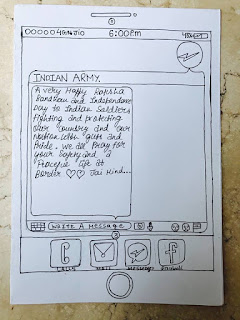 6:00PM
INDIAN ARMY.
A very Happy Raksha
Bandhan and Independence
Day to Indian Soldiers
fighting and protecting
our country and our
Nation with guts and
Pride. We all Pray for
your Safety and a
Peaceful life at
Border ♡♡ Jai Hind...
WRITE A MESSAGE
CALLS MAIL Messenger